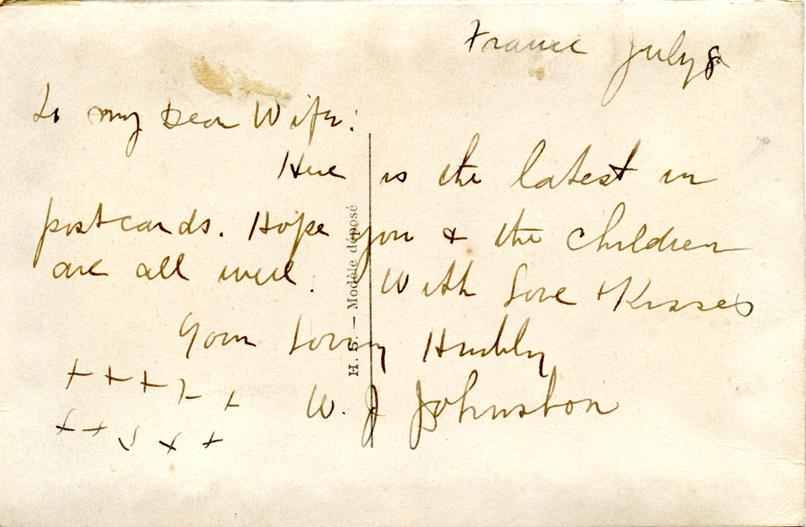 France July 8
To my Dear Wife:
Here is the latest in
postcards. Hope you & the children
are all well. With Love + Kisses
Your Loving Hubby
W. J Johnston
+ + + + +
+ + + + +
H. S. — Modèle déposé